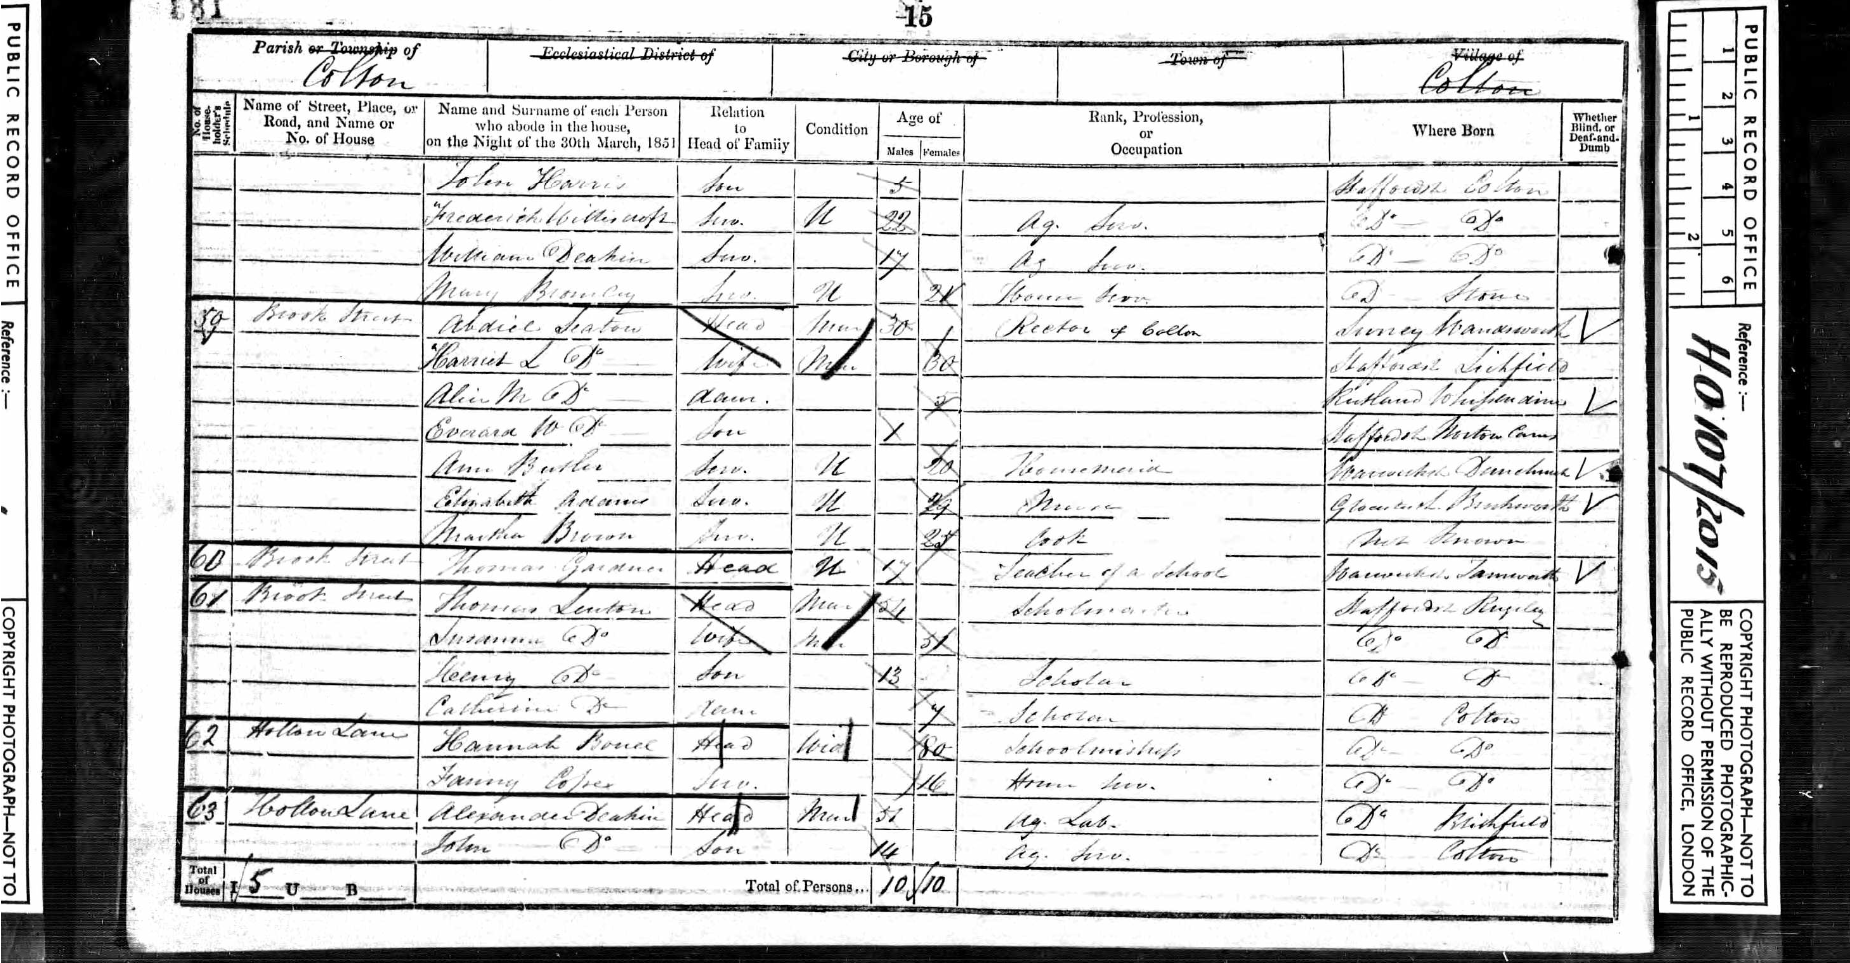 15
Parish or Township of Colton
Ecclesiastical District of
City or Borough of
Town of
Village of Colton
No. of Householder's Schedule
Name of Street, Place, or Road, and Name or No. of House
Name and Surname of each Person who abode in the house, on the Night of the 30th March, 1851
Relation to Head of Family
Condition
Age of
Males Females
Rank, Profession, or Occupation
Where Born
Whether Blind, or Deaf-and-Dumb
John Harris Son 5 Staffordsh Colton
Frederick Serv. U 22 Ag. Serv. Do Do
William Deakin Serv. 17 Ag Serv. Do Do
Mary Bromley Serv. U 21 House Serv. Do Stone
59 Brook Street Abdiel Seaton Head Mar 30 Rector of Colton Surrey Wandsworth
Harriet L Do Wife Mar 30 Staffordsh Lichfield
Alice M Do daur. Rutland Whissendine
Everard W Do Son 1 Staffordsh Norton Canes
Ann Butler Serv. U 20 Housemaid Warwicksh Dunchurch
Elizabeth Adams Serv. U 29 Nurse
Martha Brown Serv. U Cook Not Known
60 Brook Street Thomas Gardner Head U 17 Teacher of a School Warwicksh Tamworth
61 Brook Street Thomas Head Mar 54 Scholmaster Staffordsh Rugeley
Susanna Do Wife Mar 51 Do Do
Henry Do Son 13 Scholar Do Do
Catherine Do daur 7 Scholar Do Colton
62 Hollow Lane Hannah Head Wid 80 Schoolmistress Do Do
Fanny Serv. 16 House Serv. Do Do
63 Hollow Lane Alexander Deakin Head Mar 51 Ag. Lab. Do Blithfield
John Do Son 14 Ag. Serv. Do Colton
Total of Houses I 5 U B Total of Persons... 10 10
PUBLIC RECORD OFFICE
Reference :—
COPYRIGHT PHOTOGRAPH—NOT TO
PUBLIC RECORD OFFICE
1 2 3 4 5 6
1 2
Reference :—
HO 107/2015
COPYRIGHT PHOTOGRAPH—NOT TO
BE REPRODUCED PHOTOGRAPHIC-
ALLY WITHOUT PERMISSION OF THE
PUBLIC RECORD OFFICE, LONDON